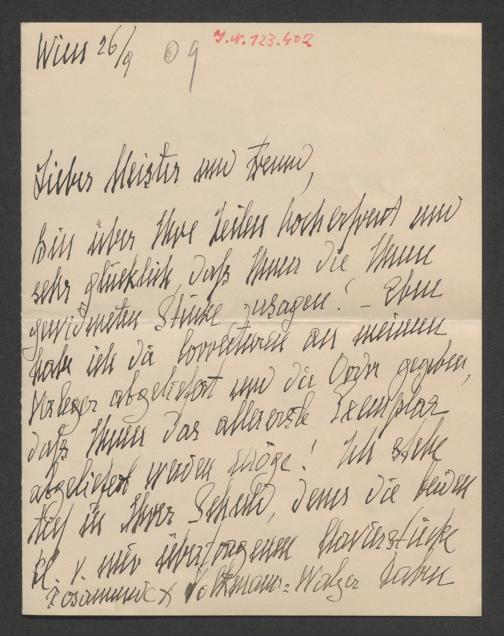 Wien 26/9 09
J.N.123.402
Lieber Meister und Freund,
bin über Ihre Zeilen hocherfreut und
sehr glücklich, daß Ihnen die Ihnen
gewidmeten Stücke zusagen! – Eben
habe ich die Correcturen an meinen
Verleger abgeliefert und die Order gegeben,
daß Ihnen das allererste Exemplar
abgeliefert werden möge! Ich stehe
tief in Ihrer Schuld, denn die beiden
v. mir übertragenen Clavierstücke
Volkmann = Walzer haben